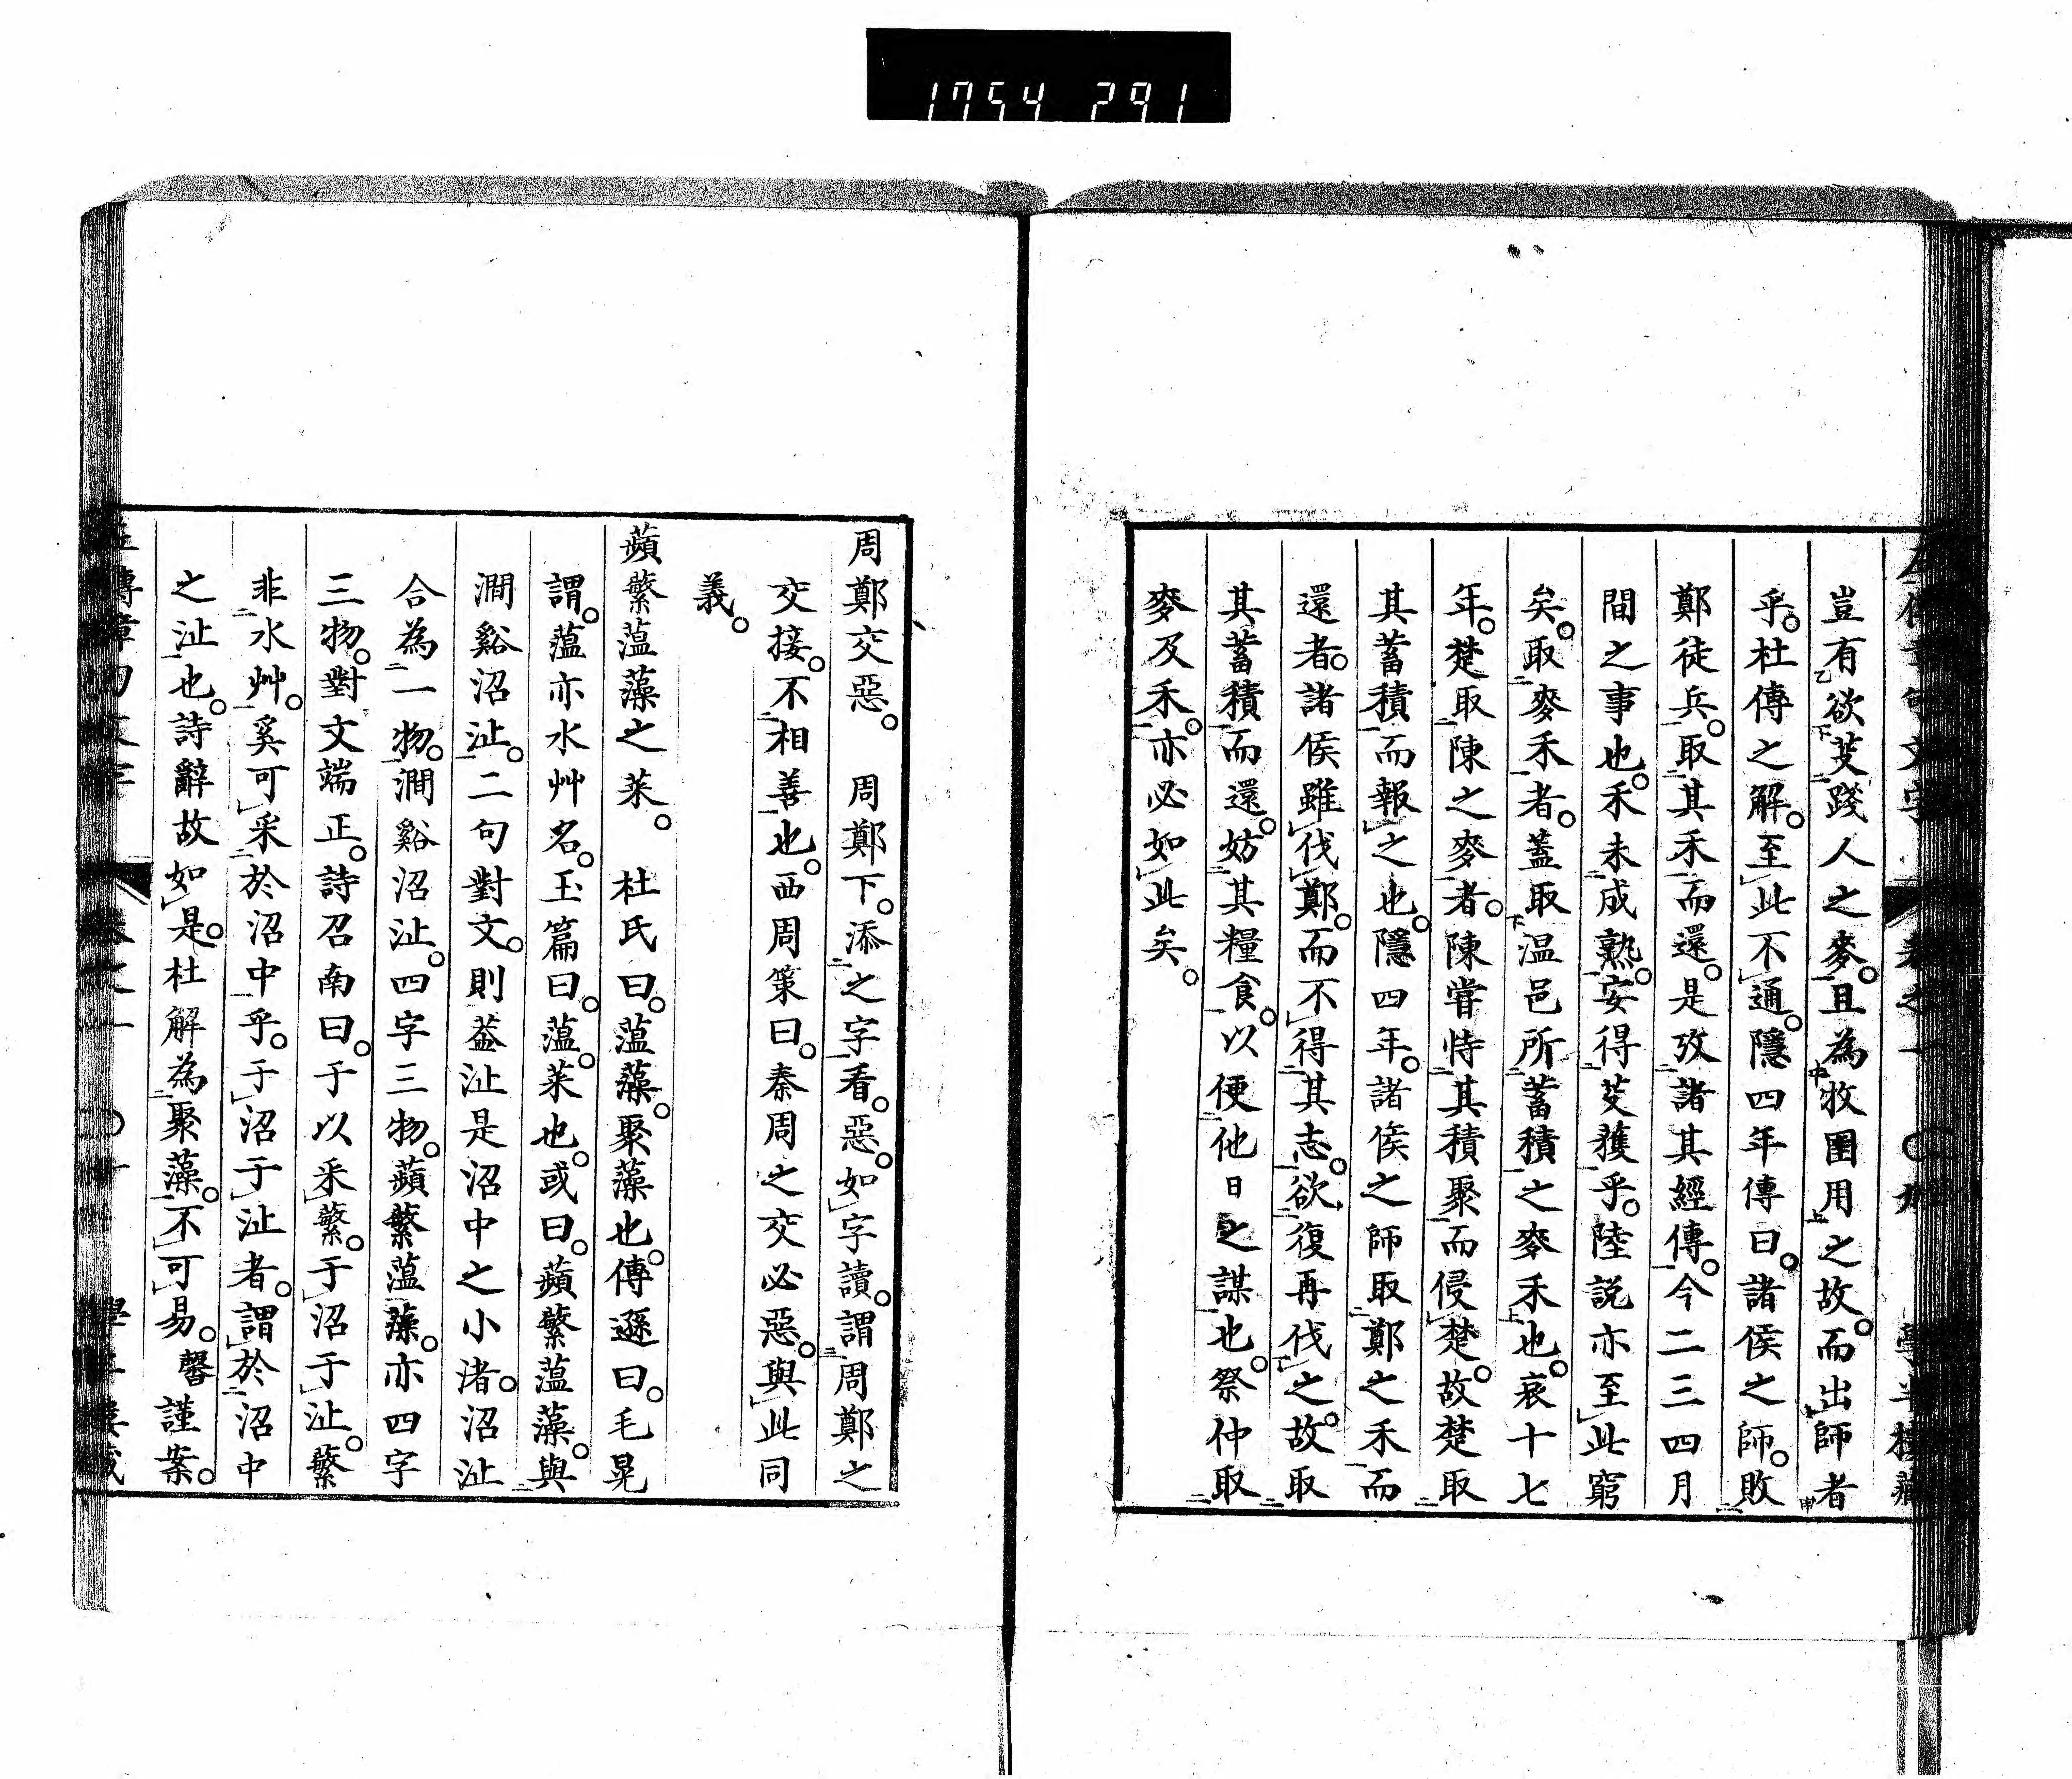 1754 291
豈有欲芟踐人之麥。且為牧圉用之故。而出師者
乎。杜傳之解。至此不通。隱四年傳曰。諸侯之師。敗
鄭徒兵。取其禾而還。是攷諸其經傳。今二三四月
間之事也。禾未成熟。安得芟獲乎。陸説亦至此窮
矣。取麥禾者。蓋取温邑所蓄積之麥禾也。哀十七
年。楚取陳之麥者。陳嘗恃其積聚而侵楚。故楚取
其蓄積而報之也。隱四年。諸侯之師取鄭之禾而
還者。諸侯雖伐鄭。而不得其志。欲復再伐之故。取
其蓄積而還。妨其糧食。以便他日之謀也。祭仲取
麥及禾。亦必如此矣。
周鄭交惡。 周鄭下。添之字看。惡。如字讀。謂周鄭之
交接。不相善也。西周策曰。秦周之交必惡。與此同
義。
蘋蘩薀藻之菜。 杜氏曰。薀藻。聚藻也。傳遜曰。毛晃
謂。薀亦水艸名。玉篇曰。薀。菜也。或曰。蘋蘩薀藻。與
澗谿沼沚。二句對文。則葢沚是沼中之小渚。沼沚
合為一物。澗谿沼沚。四字三物。蘋蘩薀藻。亦四字
三物。對文端正。詩召南曰。于以采蘩。于沼于沚。蘩
非水艸。奚可采於沼中乎。于沼于沚者。謂於沼中
之沚也。詩辭故如是。杜解為聚藻。不可易。馨謹案。
卷之一